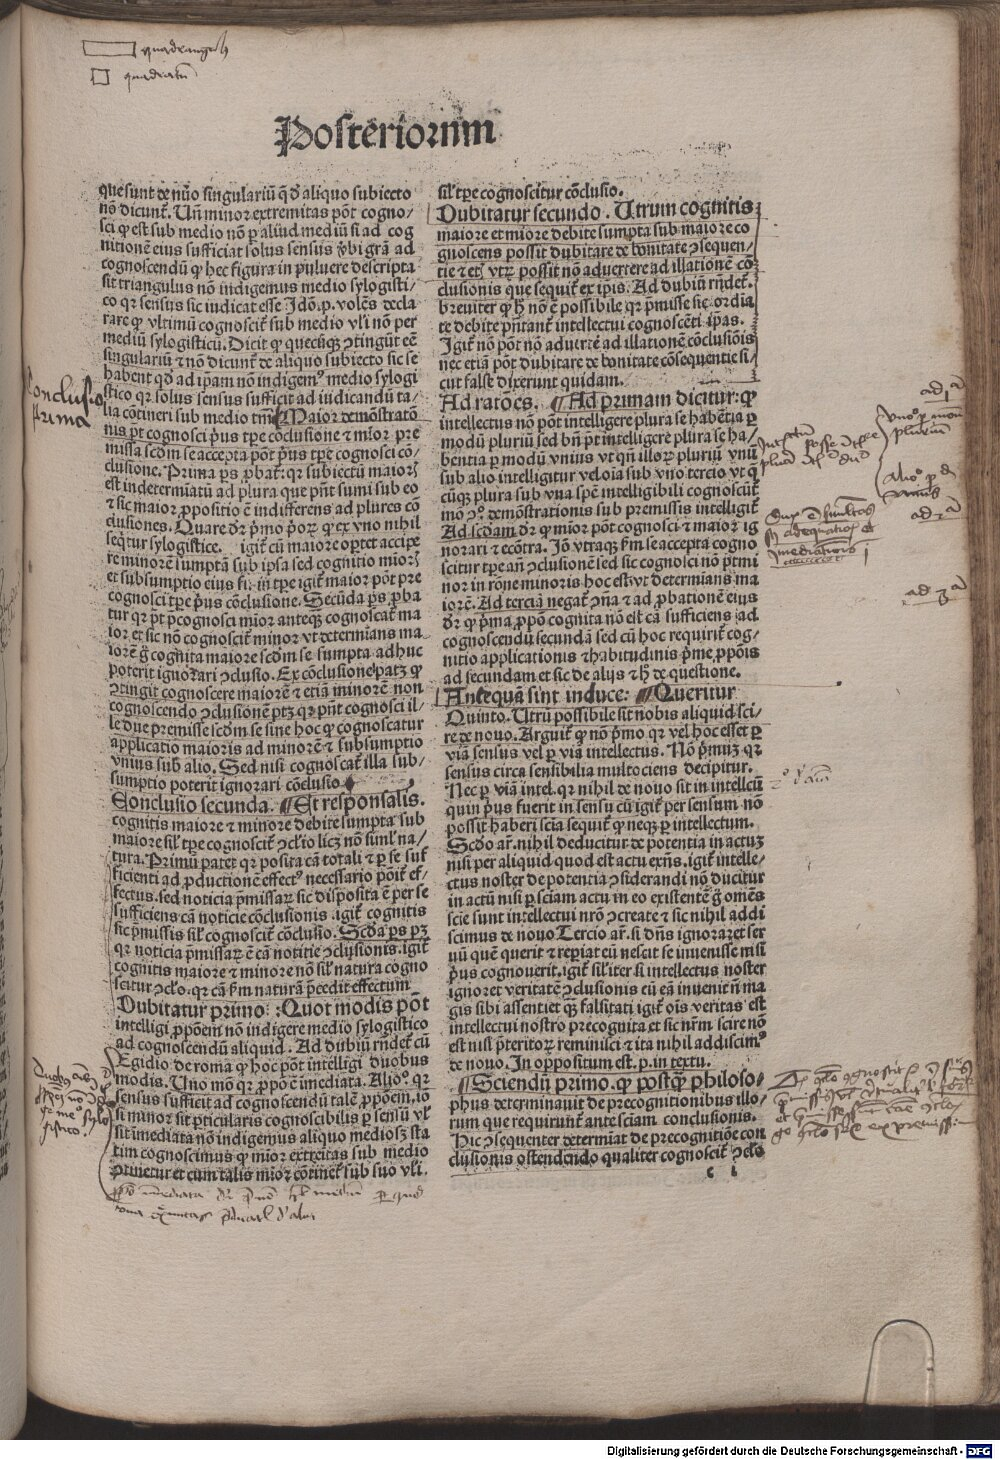 quadrangulus
quadratum
Posteriorum
que sunt de nūo singulariū q̄ d̄ aliquo subiecto
nō dicunt̄. Un̄ minor extremitas pōt cogno/
sci ꝙ est sub medio nō ꝑ aliud mediū si ad cog
nitionē eius sufficiat solus sensus v̄bi grā ad
cognoscendū ꝙ hec figura in puluere descripta
sit triangulus nō indigemus medio sylogisti/
co qr sensus sic iudicat esse Idō .p. volēs decla
rare ꝙ vltimū cognoscit̄ sub medio vl'i nō per
mediū sylogisticū. Dicit ꝙ quecūqꝫ ꝯtingūt eē
singulariū ⁊ nō dicunt̄ de aliquo subiecto sic se
habent qd̄ ad ip̄am nō indigemꝰ medio sylogi
stico qr solus sensus sufficit ad iudicandū ta/
lia cōtineri sub medio tm̄ Maior demōstratō
nis p̄t cognosci p̄us tꝑe cōclusione ⁊ mīor pre
missa scdm se accepta pōt p̄us tꝑe cognosci cō/
clusione. Prima ps ꝓbat̄: qr subiectū maioris
est indeterminatū ad plura que p̄nt sumi sub eo
⁊ sic maior ꝓpositio ē indifferens ad plures cō
clusiones. Quare dr̄ p̄mo p̄orꝝ ꝙ ex vno nihil
seq̄tur sylogistice. igit̄ cū maiore oꝑtet accipe
re minorē sumptā sub ipsa sed cognitio mioris
et subsumptio eius fi· in tꝑe igit̄ maior pōt pre
cognosci tꝑe p̄us cōclusione. Secūda ꝑs ꝓba
tur qr p̄t p̄cognosci mior anteqꝫ cognoscat̄ ma
ior et sic nō cognoscit̄ minor vt determīans ma
iorē ḡ cognita maiore scdm se sumpta adhuc
poterit ignorari ꝯclusio. Ex cōclusione patꝫ ꝙ
ꝯtingit cognoscere maiorē ⁊ etiā minorē non
cognoscendo ꝯclusionē ptꝫ qr p̄nt cognosci il/
le due premisse scdm se sine hoc ꝙ cognoscatur
applicatio maioris ad minorē ⁊ subsumptio
vnius sub alio. Sed nisi cognoscat̄ illa sub/
sumptio poterit ignorari cōclusio
Conclusio secunda. ¶Et responsalis.
cognitis maiore ⁊ minore debite sumpta sub
maiore sil' tꝑe cognoscit̄ ꝯcl'io licꝫ nō siml' na/
tura. Primū patet qr posita cā totali ⁊ ꝑ se suf
ficienti ad ꝓductionē effectꝰ necessario pōit̄ ef/
fectus. sed noticia p̄missaꝝ sic disposita ē per se
sufficiens cā noticie cōclusionis .igit̄ cognitis
sic p̄missis sil' cognoscit̄ cōclusio. Scda ꝑs pꝫ
qr noticia p̄missaꝝ ē cā notitie ꝯclusionis. igit̄
cognitis maiore ⁊ minore nō sil' natura cogno
scitur ꝯclo. qr cā s̄m naturā p̄cedit effectum
Dubitatur primo: Quot modis pōt
intelligi ꝓpōem nō indigere medio sylogistico
ad cognoscendū aliquid. Ad dubiū rn̄det̄ cū
Egidio de roma ꝙ hoc pōt intelligi duobus
modis. Uno mō qr ꝓpō ē īmediata. Alioꝰ. qr
sensus sufficit ad cognoscendū talē ꝓpōem, io
si minor sit ꝑticularis cognoscibilis ꝑ sensū vl'
sit īmediata nō indigemus aliquo medio sꝫ sta
tim cognoscimus ꝙ mior extreitas sub medio
ꝯtinetur et cum talis mior cōtinet̄ sub suo vl'i.
sil' tꝑe cognoscitur cōclusio.
Dubitatur secundo. Utrum cognitis
maiore et miore debite sumpta sub maiore co
gnoscens possit dubitare de bonitate ꝯsequen/
tie ⁊ etꝫ vtꝝ possit nō aduertere ad illationē cō/
clusionis que sequit̄ ex ipis. Ad dubiū rn̄det̄.
breuiter ꝙ h̄ nō ē possibile qr p̄misse sic ordia
te debite p̄ntant̄ intellectui cognoscēti ip̄as.
Igit̄ nō pōt nō aduertē ad illationē cōclusiōis
nec etiā pōt dubitare de bonitate cōsequentie si/
cut false dixerunt quidam.
Ad ratōes. ¶Ad primam dicitur: ꝙ
intellectus nō pōt intelligere plura se habētia ꝑ
modū pluriū sed bn̄ p̄t intelligere plura se ha/
bentia ꝑ modū vnius vt qn̄ illoꝝ pluriū vnū
sub alio intelligitur vel oīa sub vno tercio vt q̄
cūqꝫ plura sub vna spē intelligibili cognoscūt̄
mō ꝯꝰ demōstrationis sub premissis intelligit̄
Ad scdam dr̄ ꝙ mior pōt cognosci ⁊ maior ig
norari ⁊ ecōtra. Iō vtraqꝫ s̄m se accepta cogno
scitur tꝑe an̄ ꝯclusionē sed sic cognosci nō ptmi
nor in rōne minoris hoc est vt determīans ma
iorē. Ad terciā negat̄ ꝯn̄a ⁊ ad ꝓbationē eius
dr̄ ꝙ p̄ma ꝓpō cognita nō est cā sufficiens ad
cognoscendū secundā sed cū hoc requirit̄ cog/
nitio applicationis ⁊ habitudinis p̄me ꝓpōis
ad secundam et sic de alijs ⁊ h̄ de questione.
Antequā sint induce: ¶Queritur
Quinto. Utrū possibile sit nobis aliquid sci/
re de nouo. Arguit̄ ꝙ nō p̄mo qr vel hoc esset ꝑ
viā sensus vel ꝑ viā intellectus. Nō p̄mūꝫ qr
sensus circa sensibilia multociens decipitur.
Nec ꝑ viā intel. qr nihil de nouo sit in intellcū
quin p̄us fuerit in sensu cū igit̄ per sensum nō
possit haberi scia sequit̄ ꝙ neqꝫ ꝑ intellectum.
Scdo ar̄. nihil deducitur de potentia in actuꝫ
nisi per aliquid quod est actu exn̄s. igit̄ intelle/
ctus noster de potentia ꝯsiderandi nō ducitur
in actū nisi ꝑ sciam actu in eo existentē ḡ omēs
scie sunt intellectui nr̄o ꝯcreate ⁊ sic nihil addi
scimus de nouo Tercio ar̄. si dn̄s ignoraret ser
uū quē querit ⁊ repiat eū nescit se inuenisse nisi
p̄us cognouerit. igit̄ sil'iter si intellectus noster
ignoret veritatē ꝯclusionis eū eā inuenit n̄ ma
gis sibi assentiet qꝫ falsitati igit̄ oīs veritas est
intellectui nostro precognita et sic nr̄m scire nō
est nisi p̄teritoꝝ reminisci ⁊ ita nihil addiscimꝰ
de nouo. In oppositum est .p. in textu.
¶Sciendū primo. ꝙ postqꝫ philoso/
phus determinauit de precognitionibus illo/
rum que requirunt̄ ante sciam conclusionis.
Hic ꝯsequenter determiat de precognitiōe con
clusionis ostendendo qualiter cognoscit̄ ꝯclo
c i
Conclusio
prima
ad 1ᵃ
ad 2ᵃ
ad 3ᵃ
Digitalisierung gefördert durch die Deutsche Forschungsgemeinschaft - DFG